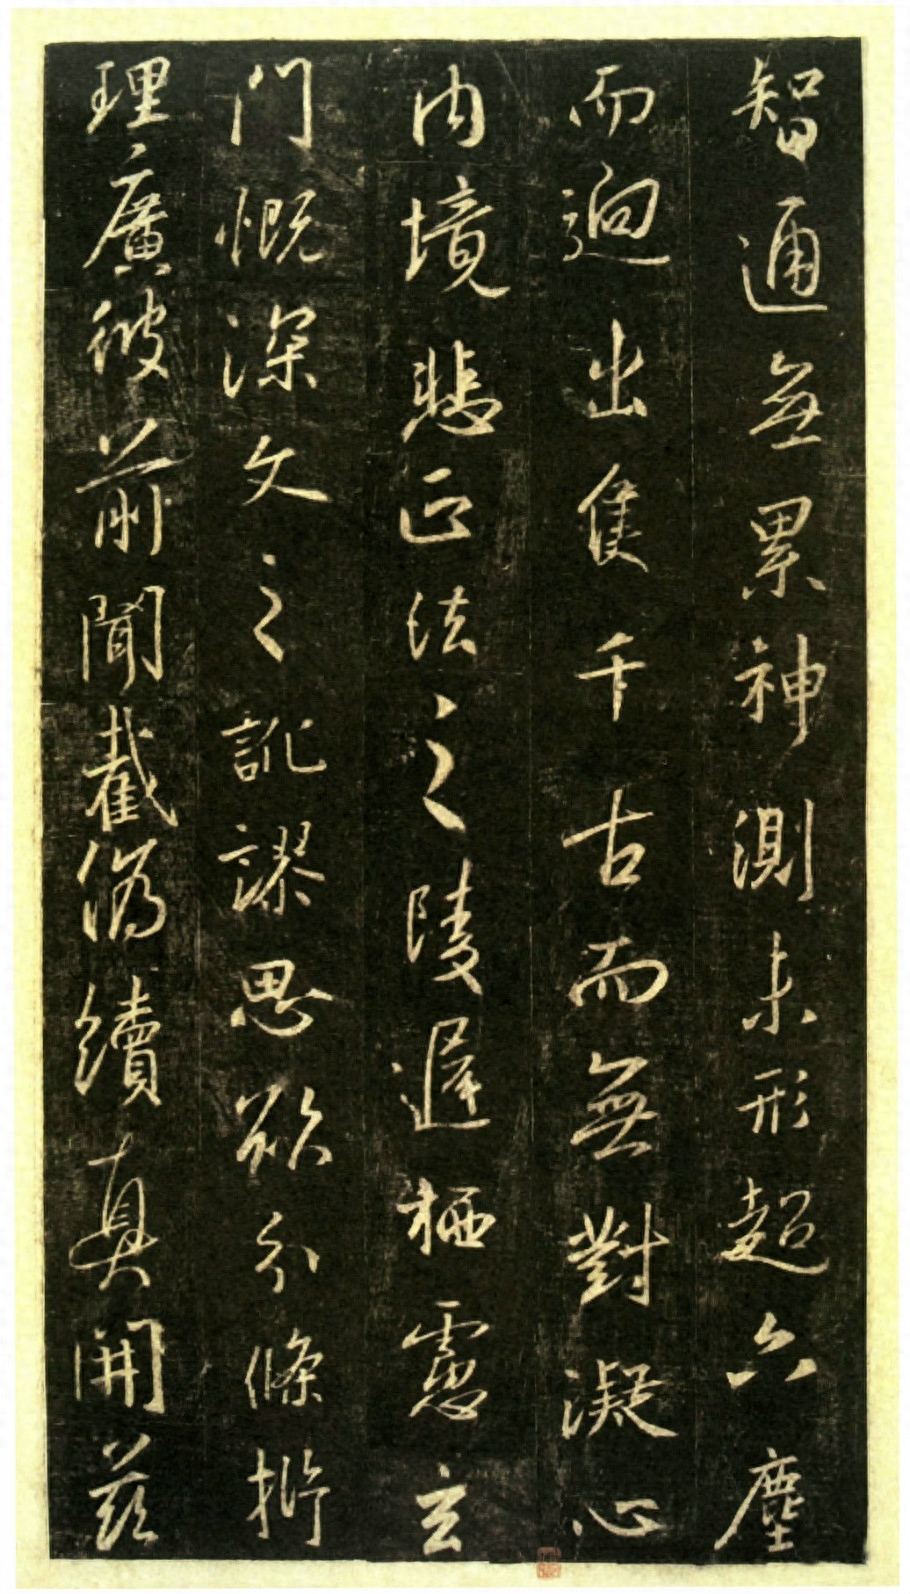 智通無累神測未形超六塵
而迥出隻千古而無對凝心
內境悲正法之陵遲栖慮玄
門慨深文之訛謬思欲分條析
理廣彼前聞截偽續真開茲